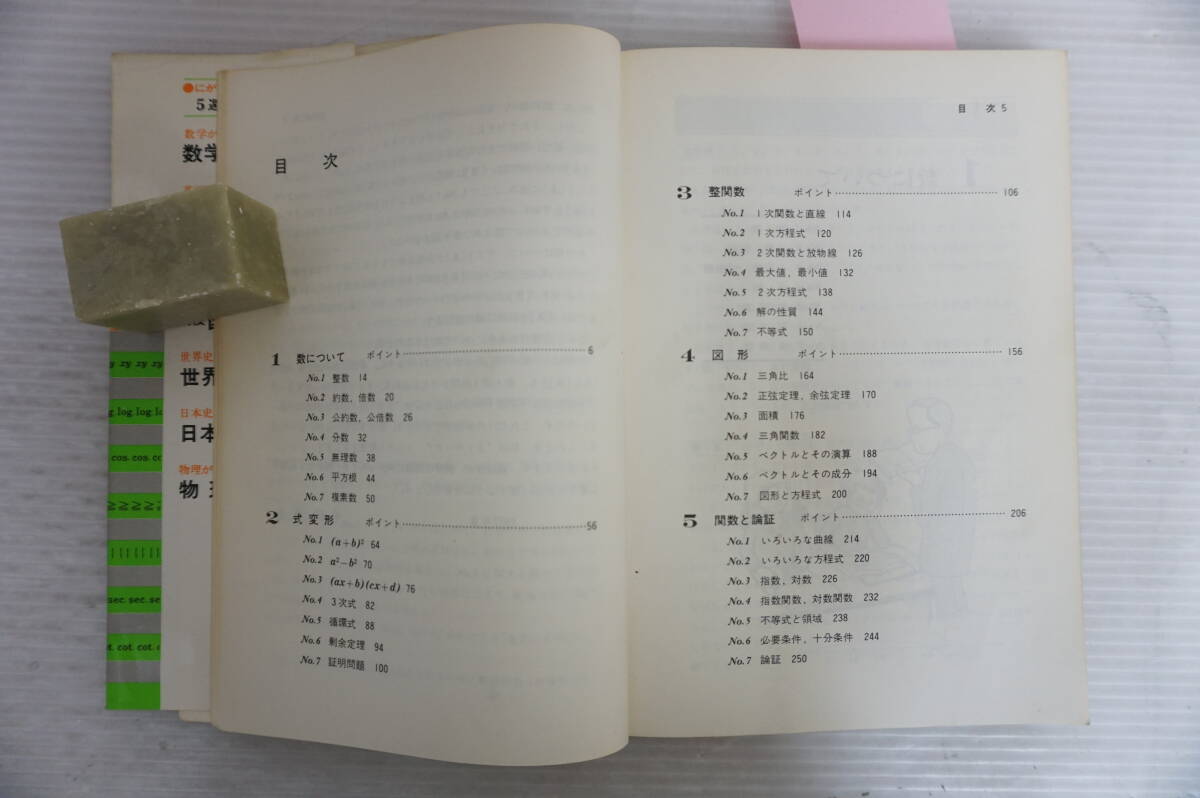 ●にが
5選
数学が
数学
世界史
世界
日本史
日本
物理が
物
zy zy zy zy
log. log. log. lo
cos. cos. co
≧≧≧≧
sec. sec. se
t. cot. cot.
目 次
1 数について ポイント 6
No.1 整数 14
No.2 約数,倍数 20
No.3 公約数,公倍数 26
No.4 分数 32
No.5 無理数 38
No.6 平方根 44
No.7 複素数 50
2 式変形 ポイント 56
No.1 (a+b)² 64
No.2 a²−b² 70
No.3 (ax+b)(cx+d) 76
No.4 3次式 82
No.5 循環式 88
No.6 剰余定理 94
No.7 証明問題 100
目 次 5
3 整関数 ポイント 106
No.1 1次関数と直線 114
No.2 1次方程式 120
No.3 2次関数と放物線 126
No.4 最大値,最小値 132
No.5 2次方程式 138
No.6 解の性質 144
No.7 不等式 150
4 図形 ポイント 156
No.1 三角比 164
No.2 正弦定理,余弦定理 170
No.3 面積 176
No.4 三角関数 182
No.5 ベクトルとその演算 188
No.6 ベクトルとその成分 194
No.7 図形と方程式 200
5 関数と論証 ポイント 206
No.1 いろいろな曲線 214
No.2 いろいろな方程式 220
No.3 指数,対数 226
No.4 指数関数,対数関数 232
No.5 不等式と領域 238
No.6 必要条件,十分条件 244
No.7 論証 250